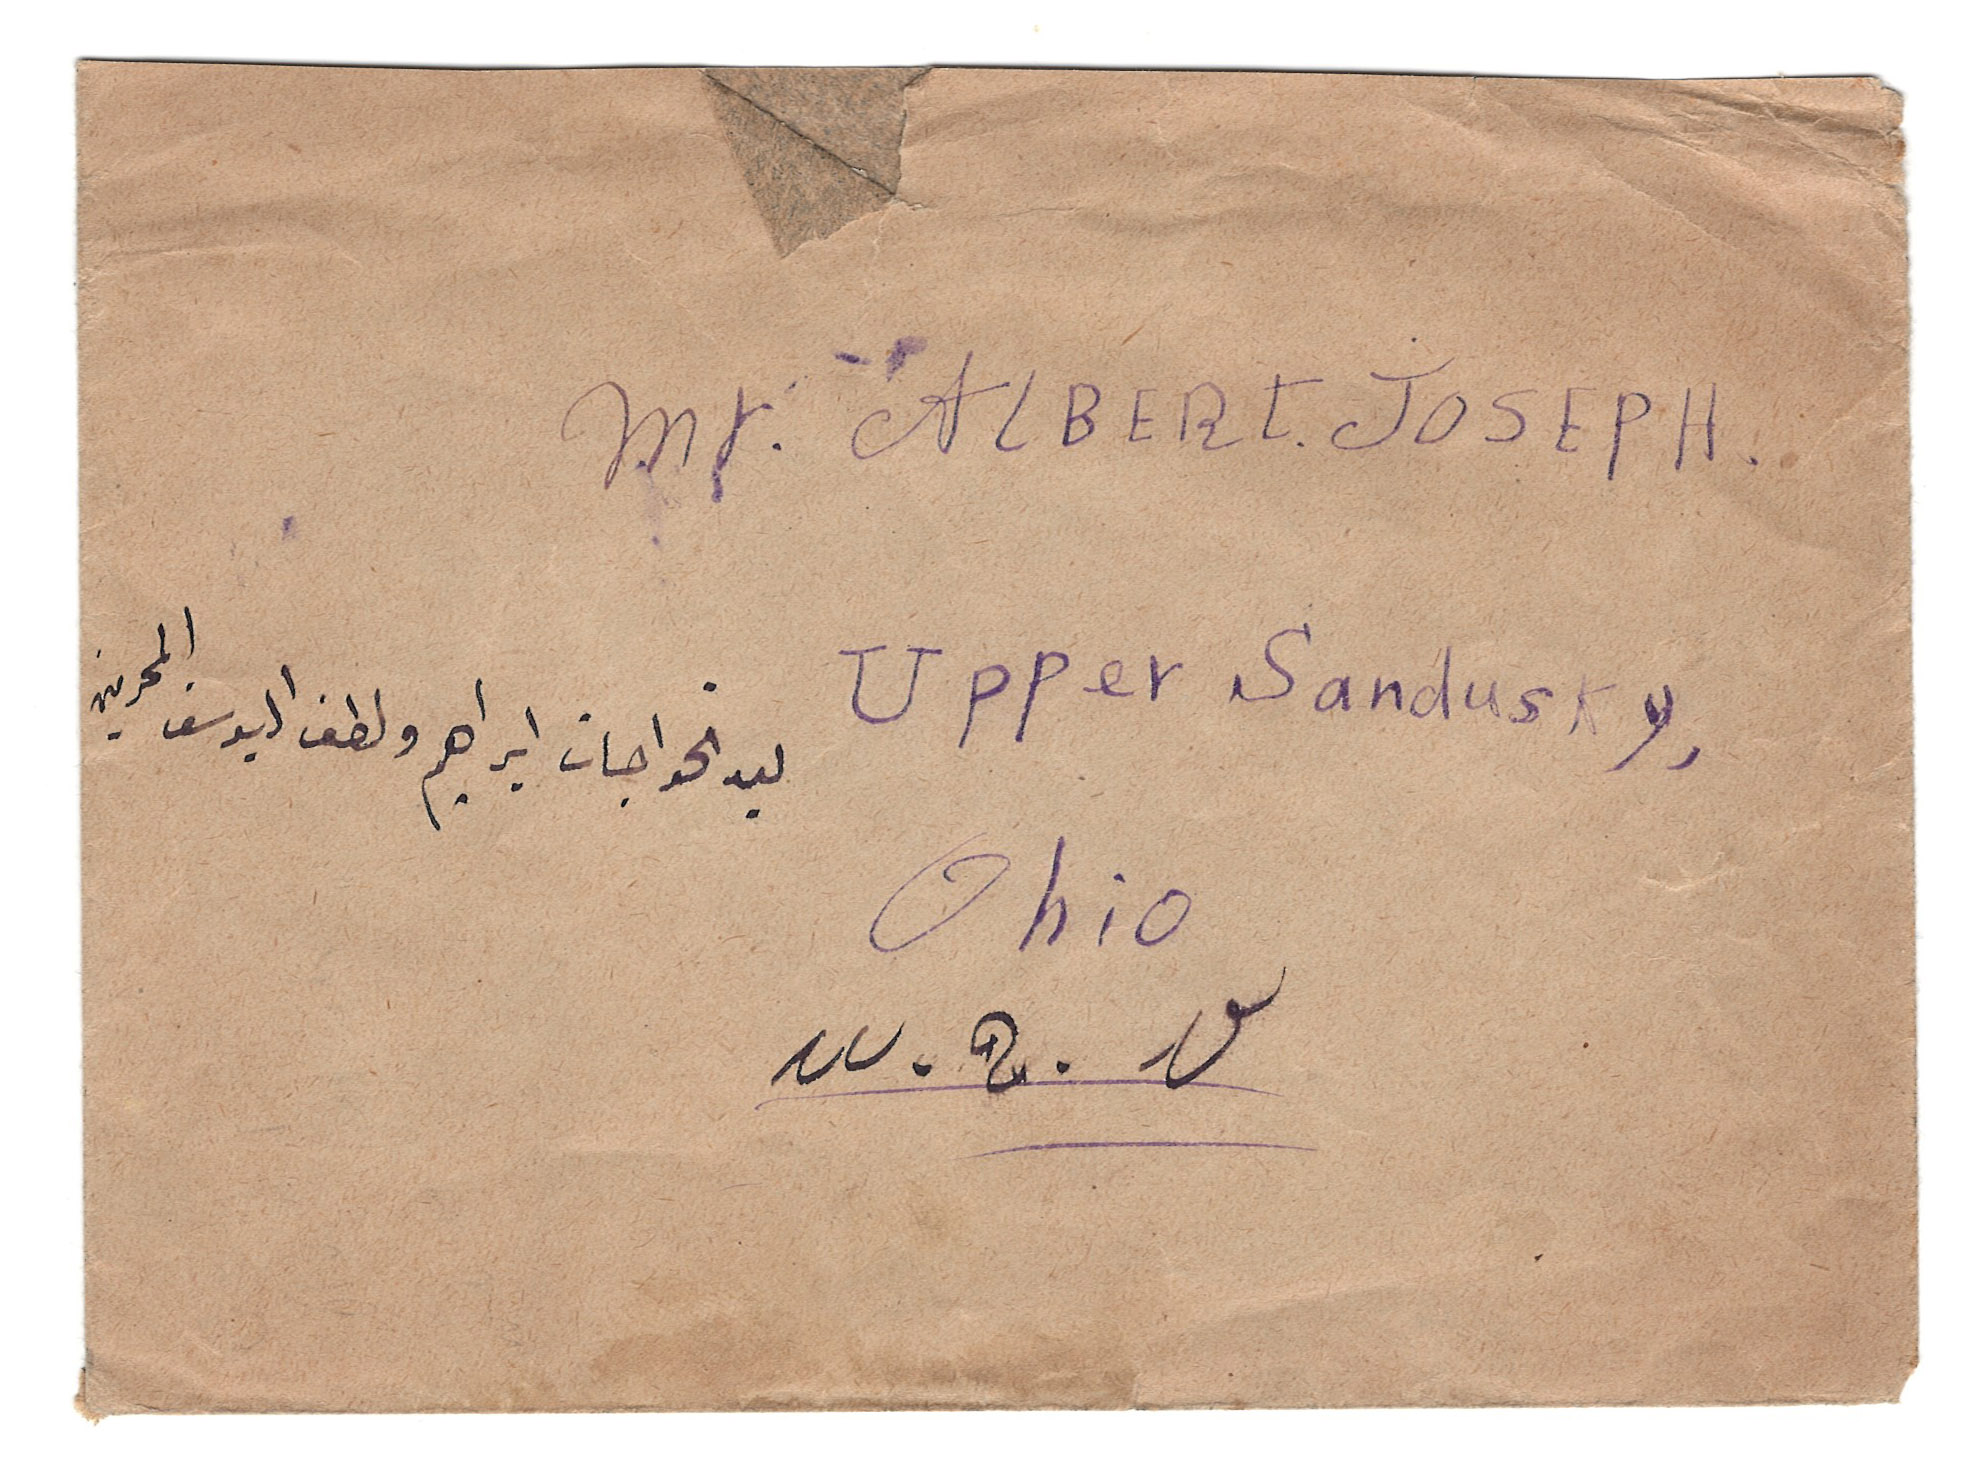 Mr. ALBERT. JOSEPH.
Upper Sandusky,
ليد الخواجات ابراهيم ولطف اليوسف المحترمين
Ohio